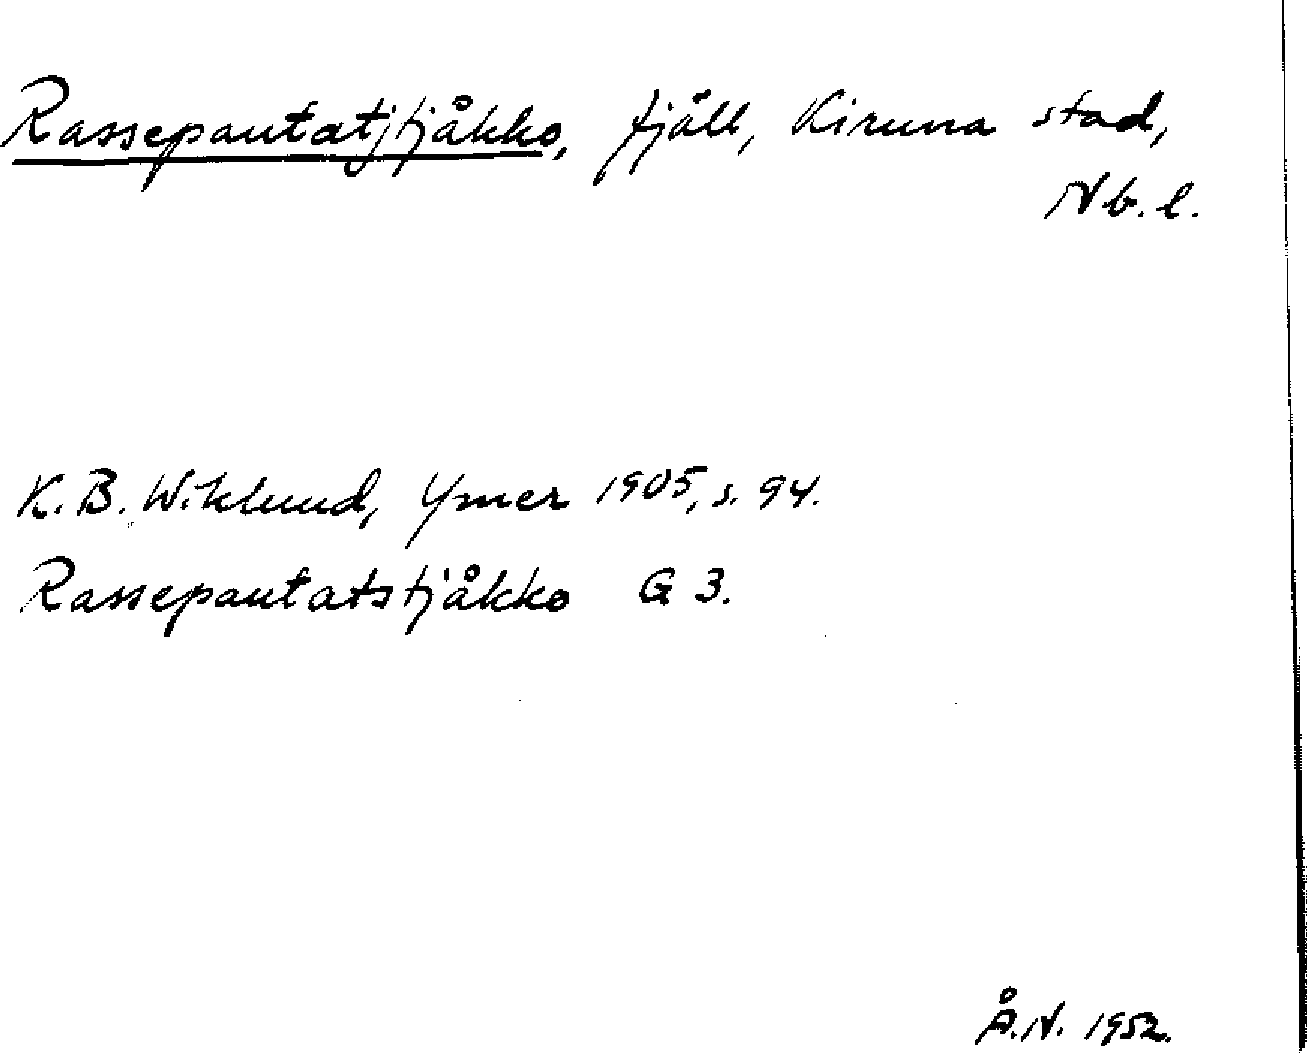 Rassepautatjtjåkko, fjäll, Kiruna stad,
Nb. l.
K. B. Wiklund, Ymer 1905, s. 94.
Rassepautatstjåkko G 3.
Å. N. 1952.